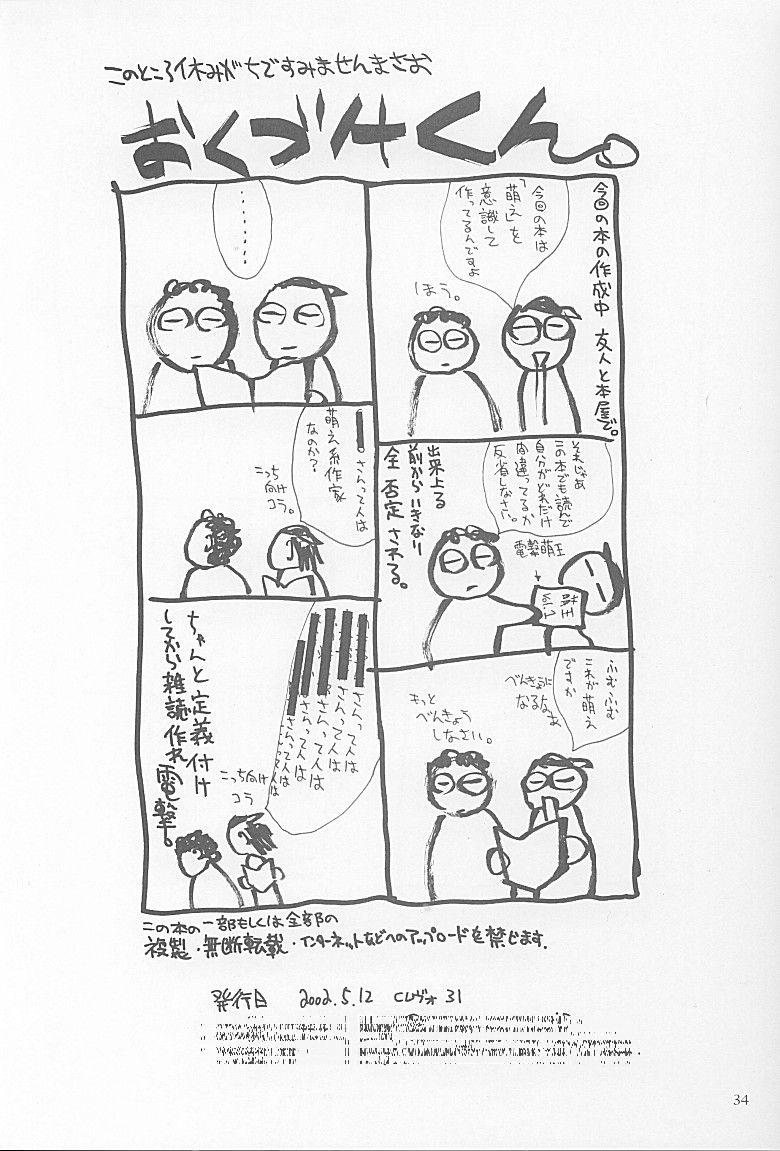 このところ休みがちですみませんまさお
おくづけくん。
今回の本の作成中 友人と本屋で。
今回の本は
「萌え」を
意識して
作ってるんですよ
ほう。
それじゃあ
この本でも読んで
自分がどれだけ
間違ってるか
反省しなさい。
電撃萌王
出来上る
前からいきなり
全否定される。
ふむふむ
これが萌え
ですか
べんきょうに
なるなぁ
もっと
べんきょう
しなさい。
………
。さんって人は
萌え系作家
なのか?
こっち
向け
コラ。
さんって人は
さんって人は
さんって人は
さんって人は
さんって人は
こっち向け
コラ
ちゃんと定義付け
してから雑誌作れ
電撃。
この本の一部もしくは全部の
複製・無断転載・インターネットなどへのアップロードを禁じます.
発行日 2002.5.12 CLヴォ31
34